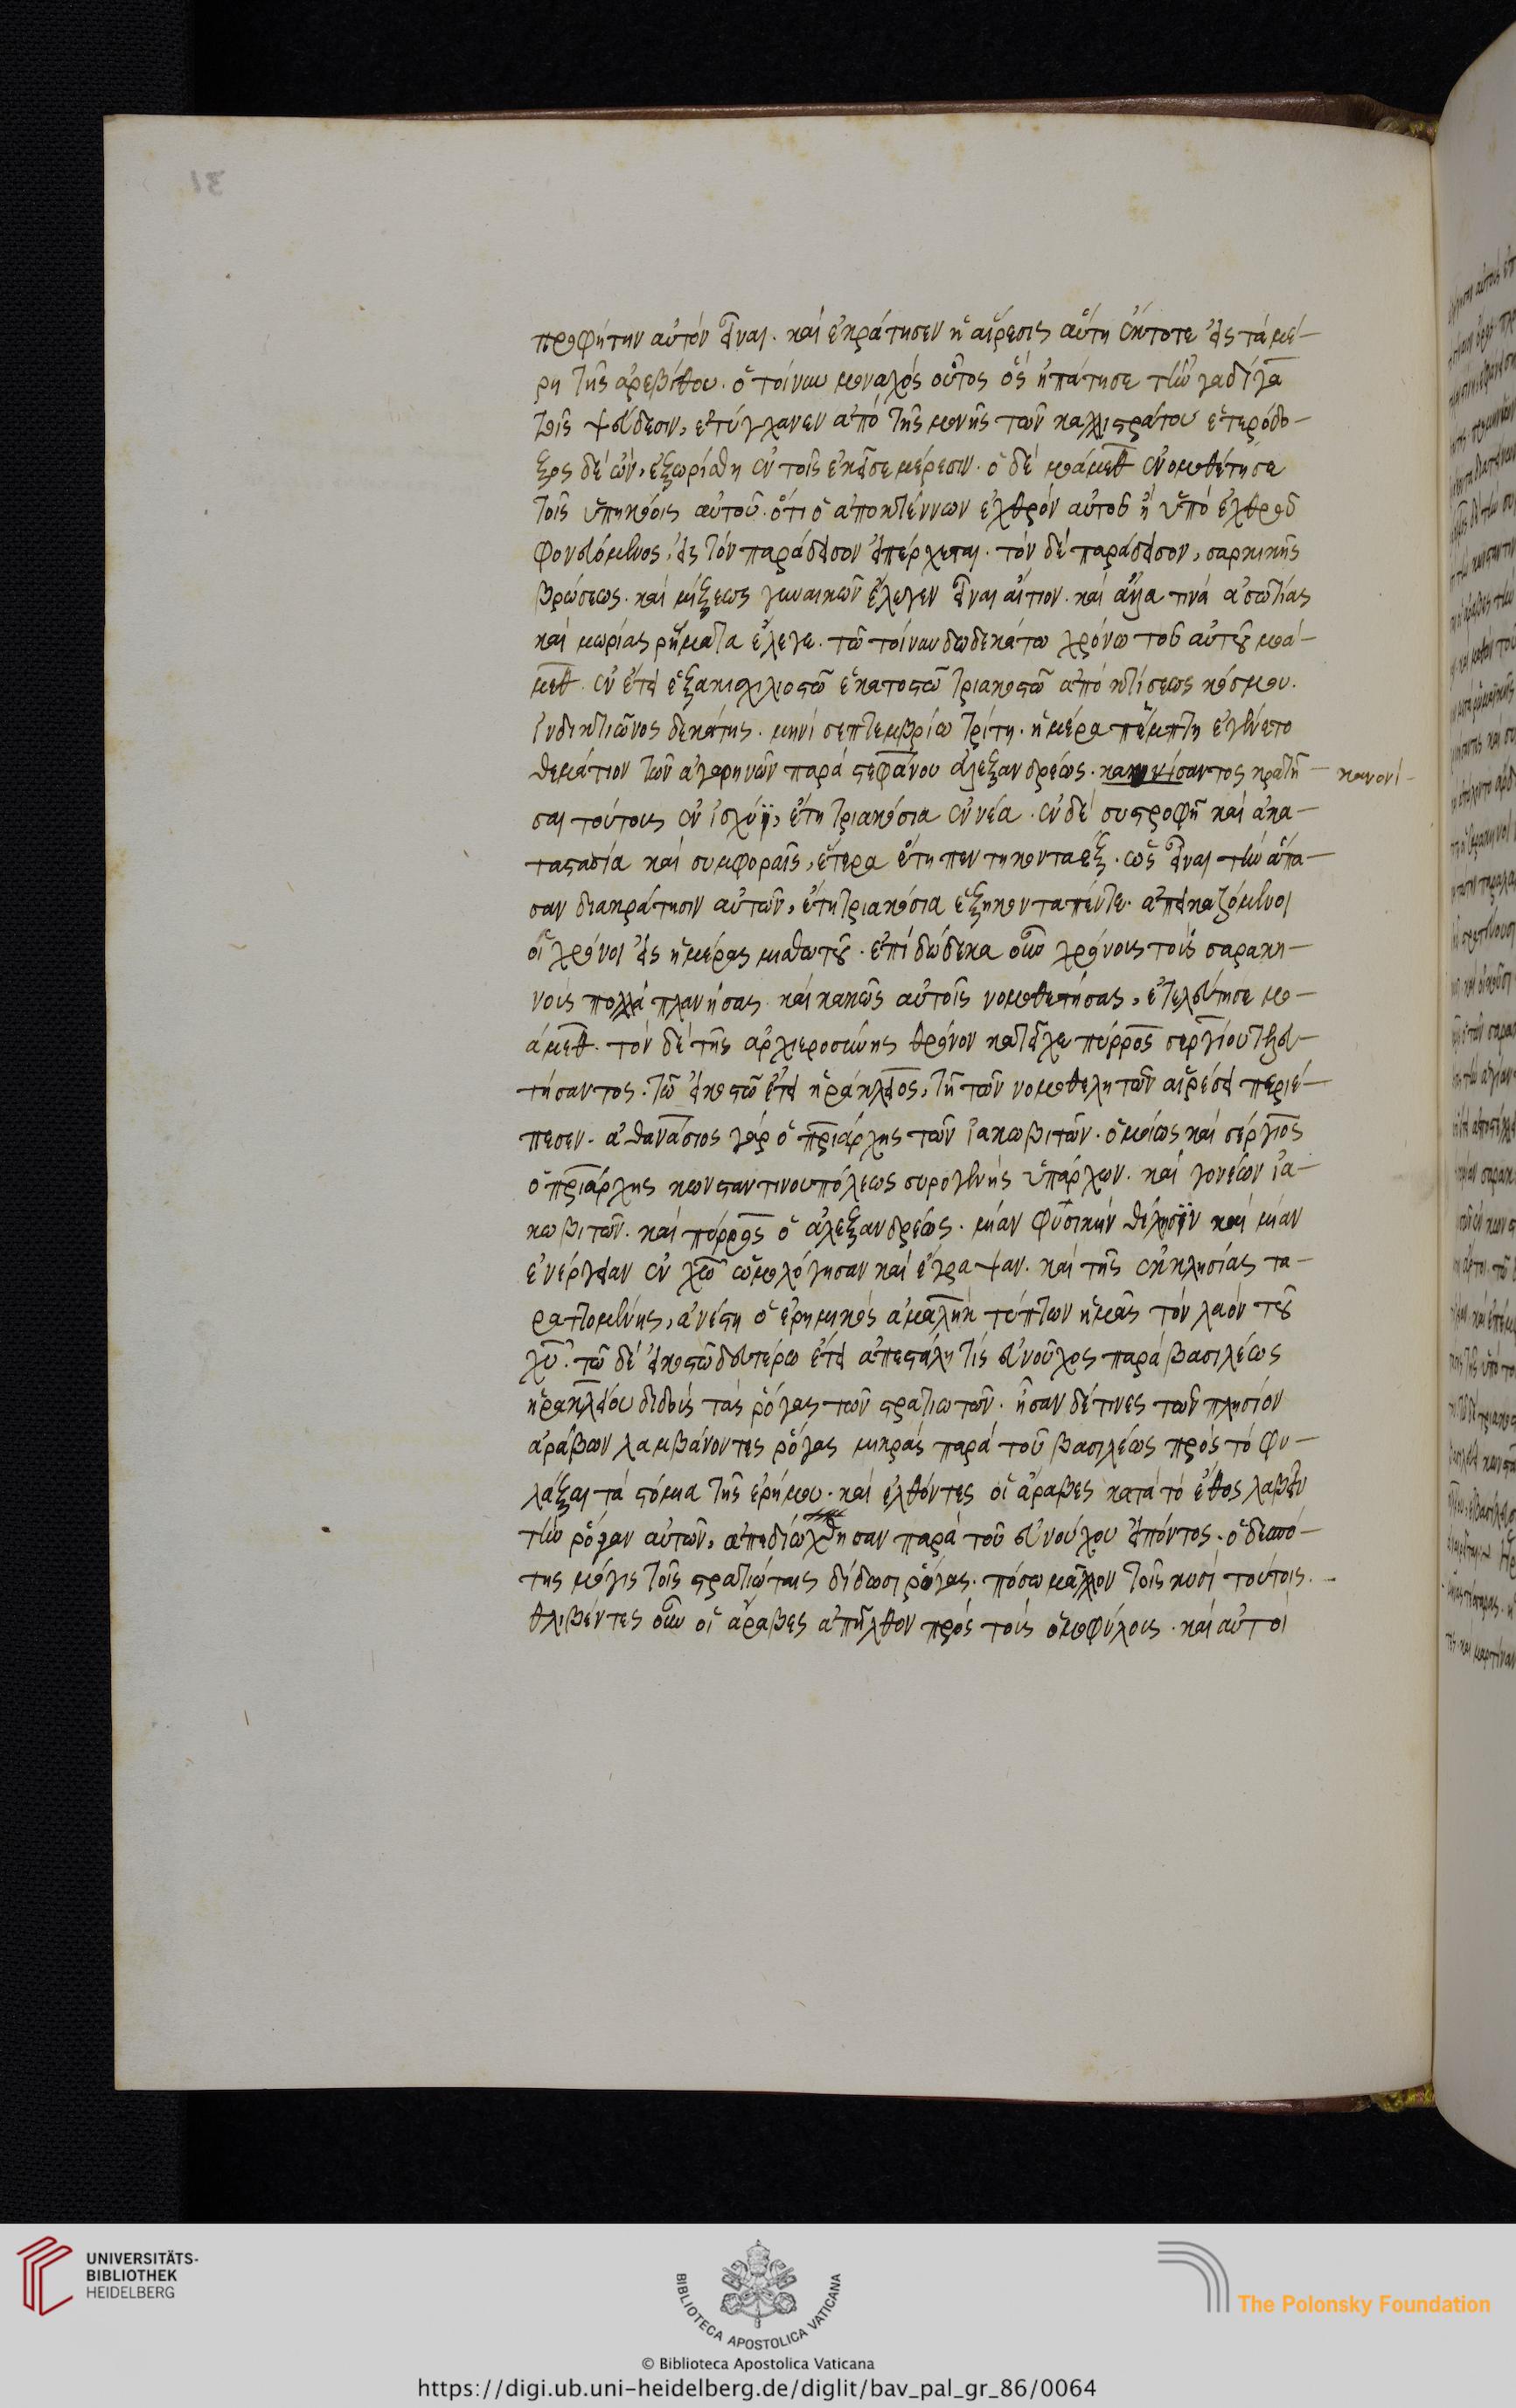 31
προφήτην αὐτὸν εἶναι. καὶ ἐκράτησεν ἡ αἵρεσις αὕτη ἔκτοτε εἰς τὰ μέ-
ρη τῆς ἀρεβίθου. ὁ τοίνυν μοναχός οὗτος ὃς ἠπάτησε τὴν γαδίγα
τοῖς ψεύδεσιν, ἐτύγχανεν ἀπὸ τῆς μονῆς τῶν καλλιστράτου ἑτερόδο-
ξος δὲ ὢν, ἐξωρίσθη ἐν τοῖς ἐκεῖσε μέρεσιν. ὁ δὲ μωάμεθ ἐνομοθέτησε
τοῖς ὑπηκόοις αὐτοῦ. ὅτι ὁ ἀποκτέννων ἐχθρὸν αὐτοῦ ἢ ὑπὸ ἐχθροῦ
φονευόμενος, εἰς τὸν παράδεισον εἰσέρχεται. τὸν δὲ παράδεισον, σαρκικῆς
βρώσεως. καὶ μίξεως γυναικῶν ἔλεγεν εἶναι αἴτιον. καὶ ἄλλα τινὰ ἀσωτίας
καὶ μωρίας ῥήματα ἔλεγε. τῷ τοίνυν δωδεκάτω χρόνω τοῦ αὐτοῦ μωά-
μεθ. ἐν ἔτει ἑξακισχιλιοστῶ ἑκατοστῶ τριακοστῶ ἀπὸ κτίσεως κόσμου.
ἰνδικτιῶνος δεκάτης. μηνὶ σεπτεμβρίω τρίτη. ἡμέρα πέμπτη ἐγένετο
θεμάτιον τῶν ἀγαρηνῶν παρὰ στεφάνου ἀλεξανδρέως. κανονίσαντος κρατῆ- κανονί-
σαι τούτους ἐν ἰσχύϊ, ἔτη τριακόσια ἐννέα. ἐν δὲ συστροφῇ καὶ ἀκα-
τασtασία καὶ συμφοραῖς, ἕτερα ἔτη πεντηκονταέξ. ὡς εἶναι τὴν ἅπα-
σαν διακράτησιν αὐτῶν, ἔτη τριακόσια ἑξηκονταπέντε. ἀπεικαζόμενοι
οἱ χρόνοι εἰς ἡμέρας μισθωτοῦ. ἐπὶ δώδεκα οὖν χρόνους τοὺς σαρακη-
νοὺς πολλὰ πλανήσας καὶ κακῶς αὐτοῖς νομοθετήσας, ἐτελεύτησε μο-
άμεθ. τὸν δὲ τῆς ἀρχιεροσύνης θρόνον κατεῖχε πύρρος σεργίου τελευ-
τήσαντος. τῶ εἰκοστῶ ἔτει ἡράκλειος, τῇ τῶν μονοθελητῶν αἱρέσει περιέ-
πεσεν. ἀθανάσιος γὰρ ὁ πριάρχης τῶν ἰακωβιτῶν. ὁμοίως καὶ σέργιος
ὁ πριάρχης κωνσταντινουπόλεως συρογενὴς ὑπάρχων. καὶ γονέων ἰα-
κωβιτῶν. καὶ πύρρος ὁ ἀλεξανδρέως. μίαν φυσικὴν θέλησιν καὶ μίαν
ἐνέργειαν ἐν χῶ ὡμολόγησαν καὶ ἔγραψαν. καὶ τῆς ἐκκλησίας τα-
ραττομένης, ἀνέστη ὁ ἐρημικὸς ἀμαλὴκ τύπτων ἡμᾶς τὸν λαὸν τοῦ
χυ. τῶ δὲ εἰκοστῶ δευτέρω ἔτει ἀπεστάλη τὶς εὐνοῦχος παρὰ βασιλέως
ἡρακλείου διδοὺς τὰς ῥόγας τῶν στρατιωτῶν. ἦσαν δέ τινες τῶν πλησίον
ἀράβων λαμβάνοντες ῥόγας μικρὰς παρὰ τοῦ βασιλέως πρὸς τὸ φυ-
λάξαι τὰ στόμια τῆς ἐρήμου. καὶ ἐλθόντες οἱ ἄραβες κατὰ τὸ ἔθος λαβεῖν
τὴν ῥόγαν αὐτῶν, ἀπεδιώχθησαν παρὰ τοῦ εὐνούχου εἰπόντος. ὁ δεσπό-
της μόγις τοῖς στρατιώταις δίδωσι ῥόγας. πόσω μᾶλλον τοῖς κυσὶ τούτοις.
θλιβέντες οὖν οἱ ἄραβες ἀπῆλθον πρὸς τοὺς ὁμοφύλους. καὶ αὐτοὶ
UNIVERSITÄTS-
BIBLIOTHEK
HEIDELBERG
BIBLIOTECA APOSTOLICA VATICANA
The Polonsky Foundation
© Biblioteca Apostolica Vaticana
https://digi.ub.uni-heidelberg.de/diglit/bav_pal_gr_86/0064